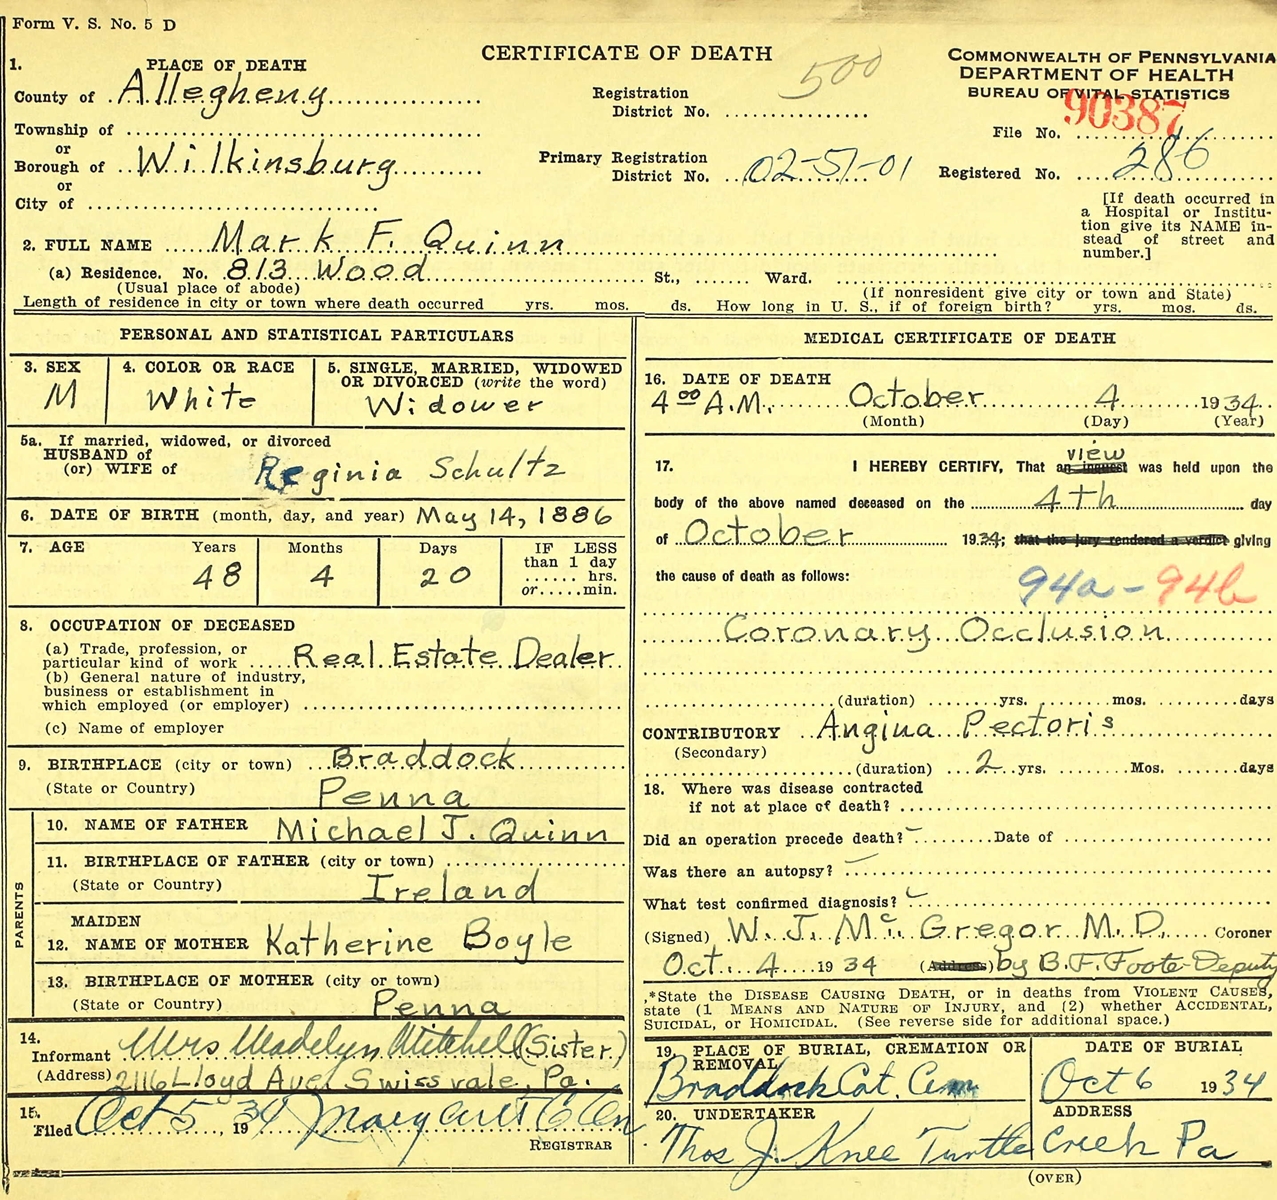 Form V. S. No. 5 D
CERTIFICATE OF DEATH
500
COMMONWEALTH OF PENNSYLVANIA
DEPARTMENT OF HEALTH
BUREAU OF VITAL STATISTICS
1. PLACE OF DEATH
County of Allegheny
Township of
or
Borough of Wilkinsburg
or
City of
Registration District No.
Primary Registration District No. 02-51-01
File No. 90387
Registered No. 286
[If death occurred in
a Hospital or Institu-
tion give its NAME in-
stead of street and
number.]
2. FULL NAME Mark F. Quinn
(a) Residence. No. 813 Wood St., Ward.
(Usual place of abode) (If nonresident give city or town and State)
Length of residence in city or town where death occurred yrs. mos. ds. How long in U. S., if of foreign birth? yrs. mos. ds.
PERSONAL AND STATISTICAL PARTICULARS
3. SEX
M
4. COLOR OR RACE
White
5. SINGLE, MARRIED, WIDOWED
OR DIVORCED (write the word)
Widower
5a. If married, widowed, or divorced
HUSBAND of
(or) WIFE of Reginia Schultz
6. DATE OF BIRTH (month, day, and year) May 14, 1886
7. AGE Years Months Days IF LESS
than 1 day
48 4 20 hrs.
or min.
8. OCCUPATION OF DECEASED
(a) Trade, profession, or
particular kind of work Real Estate Dealer
(b) General nature of industry,
business or establishment in
which employed (or employer)
(c) Name of employer
9. BIRTHPLACE (city or town) Braddock
(State or Country) Penna
PARENTS
10. NAME OF FATHER Michael J. Quinn
11. BIRTHPLACE OF FATHER (city or town)
(State or Country) Ireland
MAIDEN
12. NAME OF MOTHER Katherine Boyle
13. BIRTHPLACE OF MOTHER (city or town)
(State or Country) Penna
14.
Informant Mrs Madelyn Mitchell (Sister)
(Address) 2116 Lloyd Ave. Swissvale, Pa.
15.
Filed Oct 5, 1934 Margaret
REGISTRAR
MEDICAL CERTIFICATE OF DEATH
16. DATE OF DEATH
4 00 A.M. October 4 1934
(Month) (Day) (Year)
17. I HEREBY CERTIFY, That an inquest view was held upon the
body of the above named deceased on the 4th day
of October 1934; that the jury rendered a verdict giving
the cause of death as follows:
94a - 94b
Coronary Occlusion
(duration) yrs. mos. days
CONTRIBUTORY Angina Pectoris
(Secondary)
(duration) 2 yrs. Mos. days
18. Where was disease contracted
if not at place of death?
Did an operation precede death? Date of
Was there an autopsy?
What test confirmed diagnosis?
(Signed) W. J. Mc. Gregor M.D. Coroner
Oct. 4 1934 (Address) by B.F. Foote-Deputy
*State the DISEASE CAUSING DEATH, or in deaths from VIOLENT CAUSES,
state (1 MEANS AND NATURE OF INJURY, and (2) whether ACCIDENTAL,
SUICIDAL, or HOMICIDAL. (See reverse side for additional space.)
19. PLACE OF BURIAL, CREMATION OR
REMOVAL
Braddock Cat. Cem
DATE OF BURIAL
Oct 6 1934
20. UNDERTAKER ADDRESS
Thos J. Knee Turtle Creek Pa
(OVER)